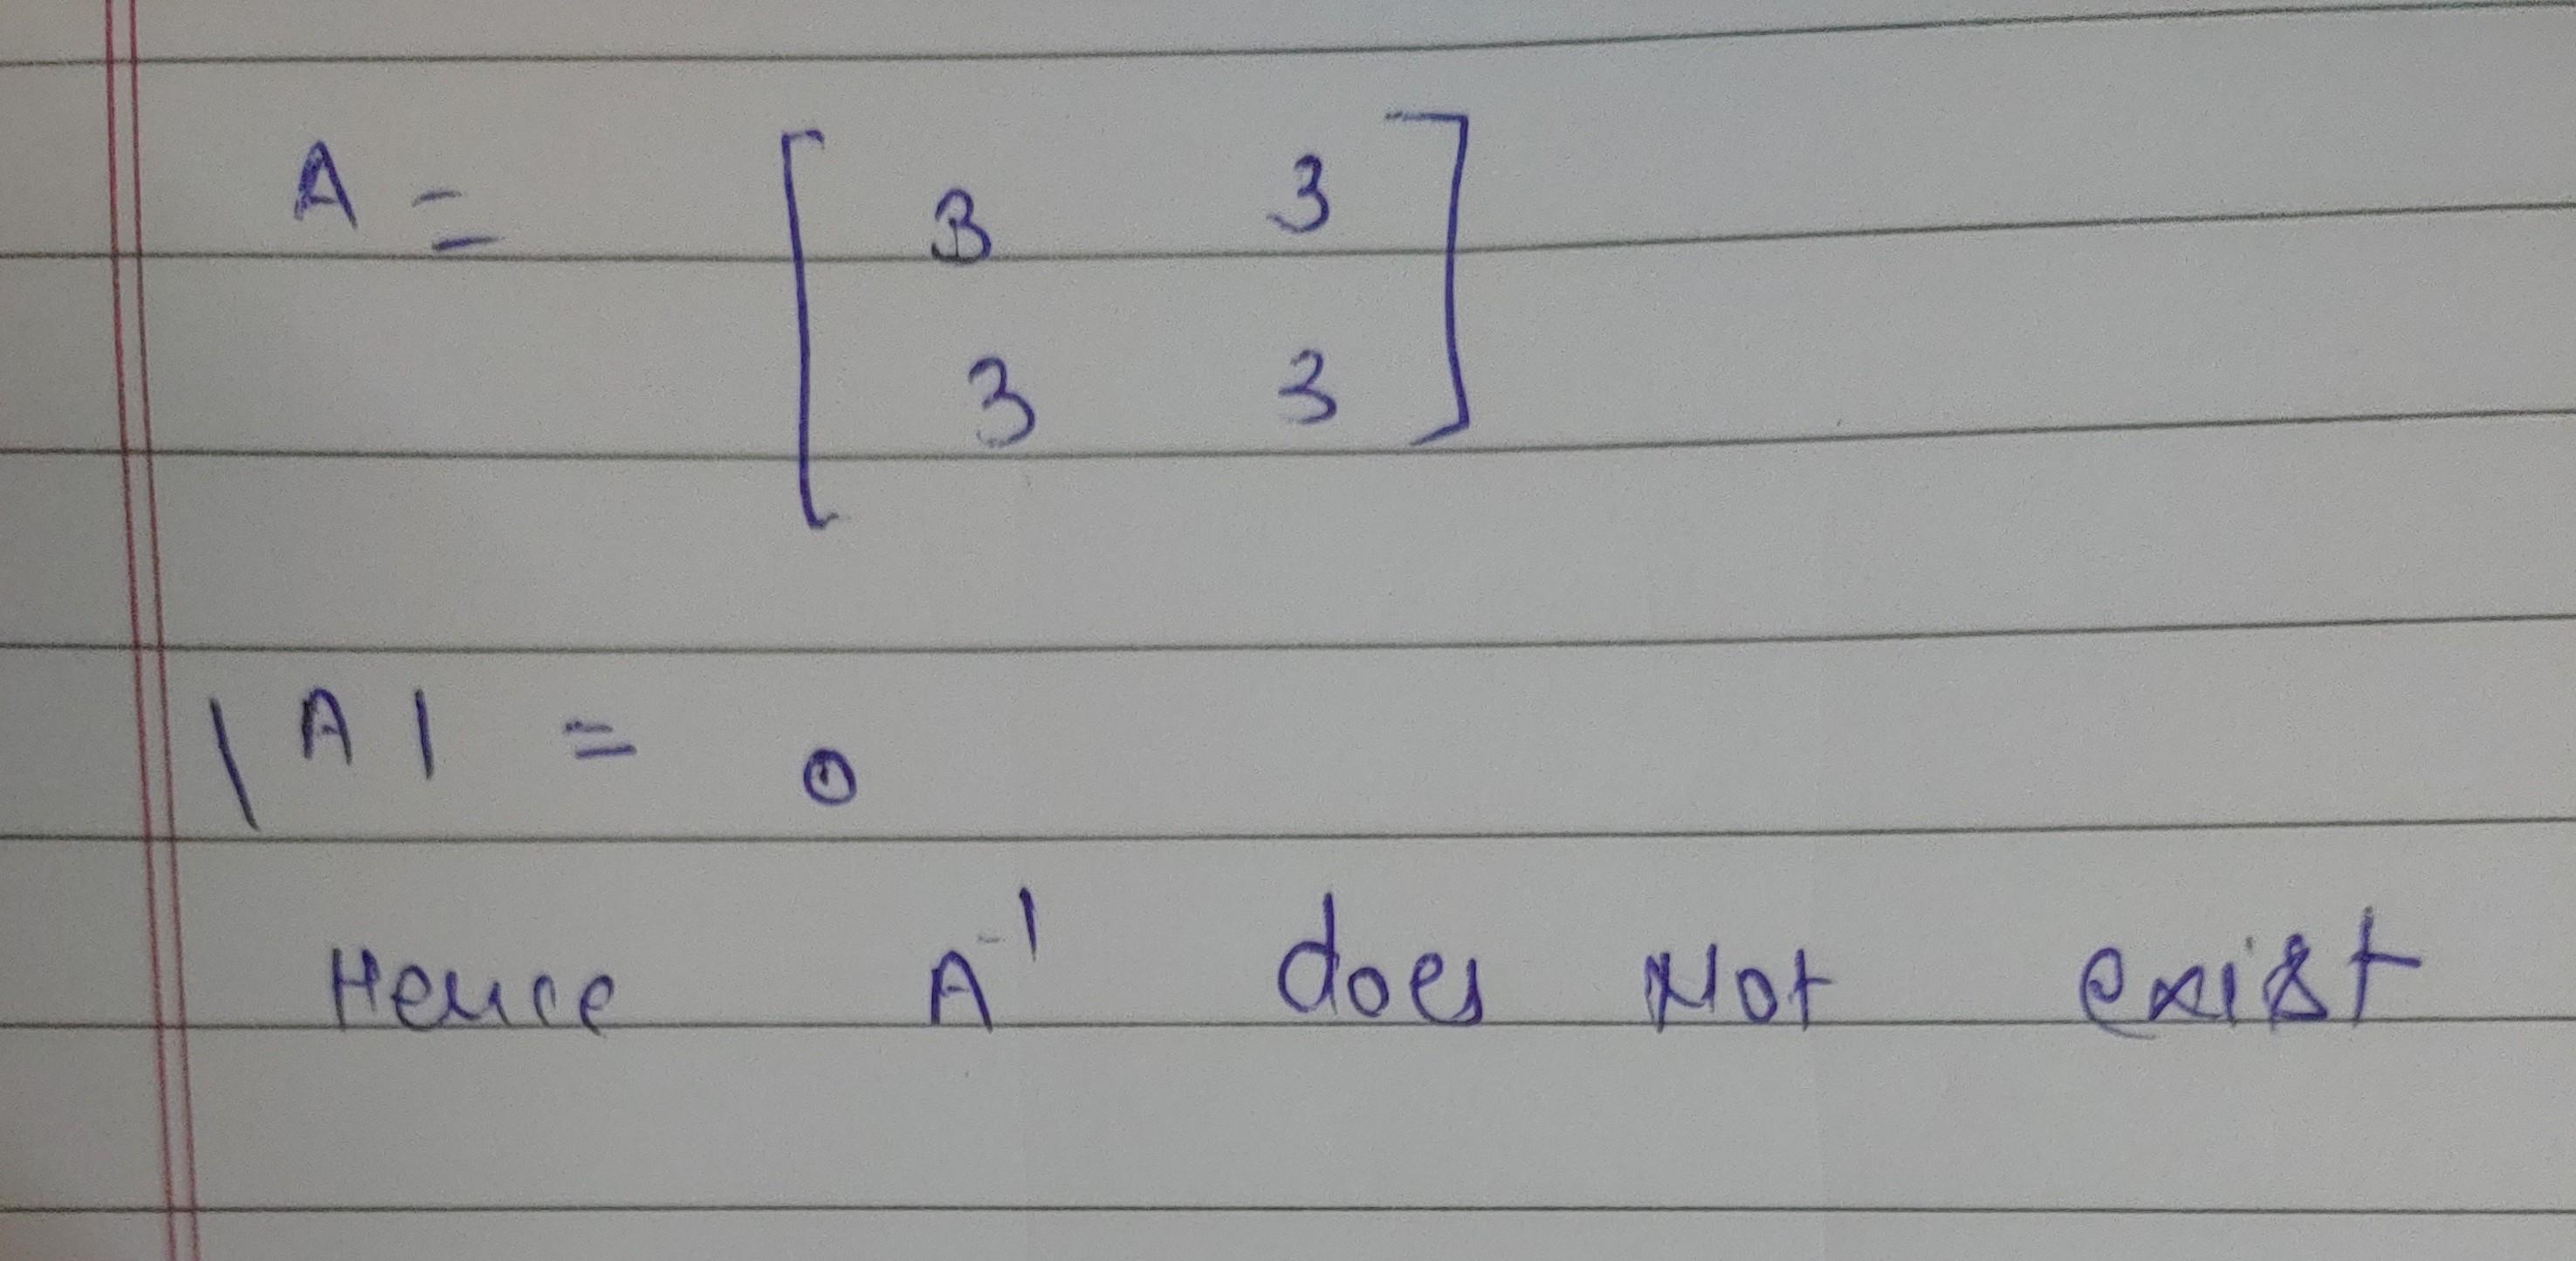 A = [ 3 3
3 3 ]
|A| = 0
Hence A⁻¹ does Not exist